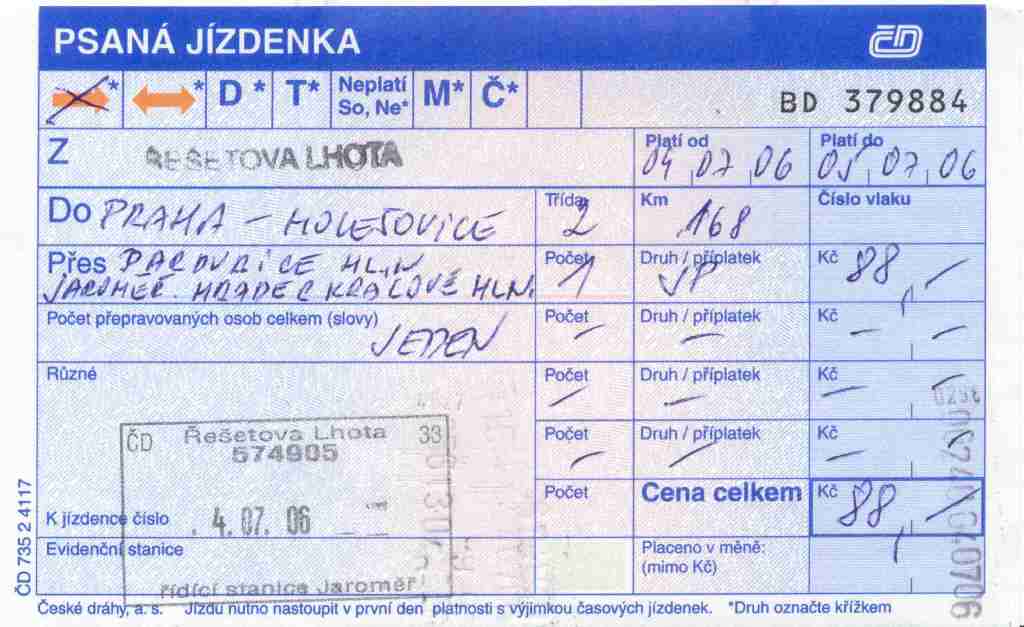 PSANÁ JÍZDENKA ČD
* * D * T* Neplatí So, Ne* M* Č* BD 379884
Z ŘEŠETOVA LHOTA Platí od 04 07 06 Platí do 05 07 06
Do PRAHA - HOLEŠOVICE Třída 2 Km 168 Číslo vlaku
Přes PARDUBICE HL.N Počet 1 Druh / příplatek JP Kč 88,-
JAROMĚŘ. HRADEC KRÁLOVÉ HLN.
Počet přepravovaných osob celkem (slovy) JEDEN Počet - Druh / příplatek - Kč - -
Různé Počet - Druh / příplatek - Kč - -
Počet - Druh / příplatek - Kč - -
ČD Řešetova Lhota 33
574905
K jízdence číslo 4.07.06 Počet Cena celkem Kč 88,-
Evidenční stanice Placeno v měně:
(mimo Kč)
řídící stanice Jaroměř
České dráhy, a. s. Jízdu nutno nastoupit v první den platnosti s výjimkou časových jízdenek. *Druh označte křížkem
ČD 735 2 4117